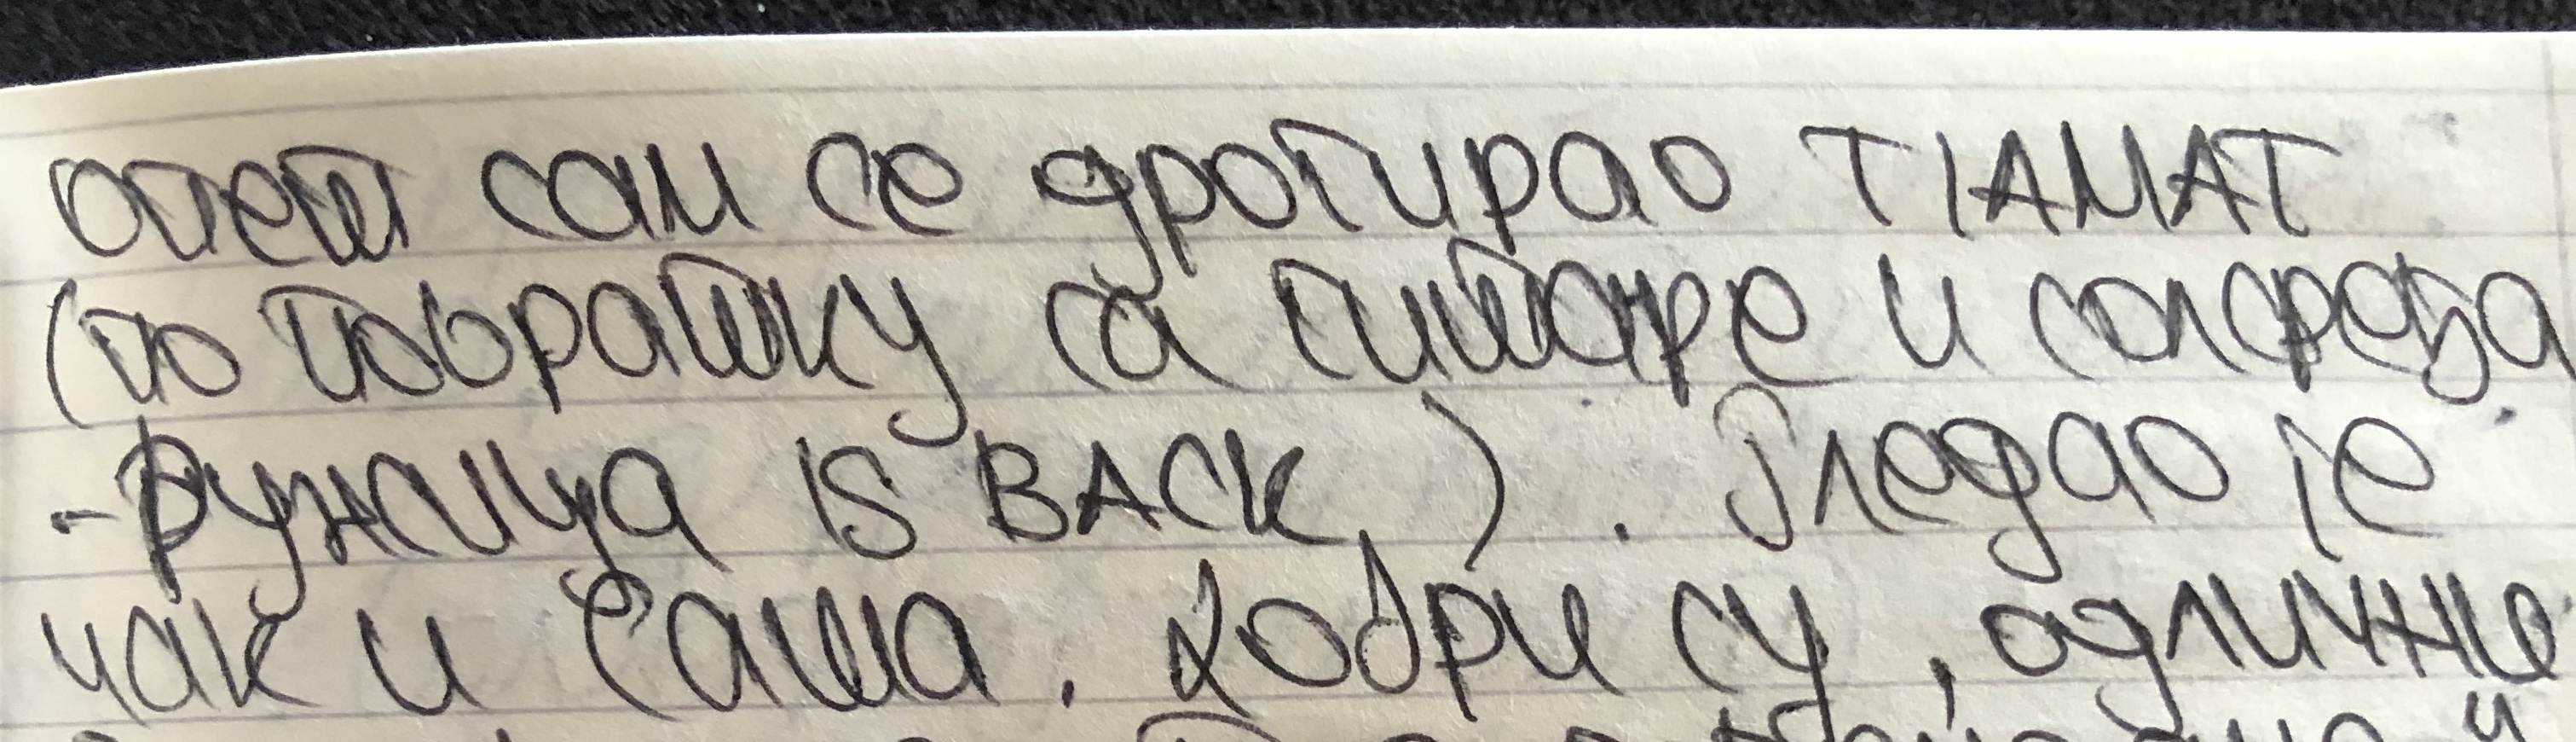 опет сам се дрогирао TIAMAT
(по повратку са гитаре и
-Ружица IS BACK). Гледао је
чак и Саша. Добри су, одлични